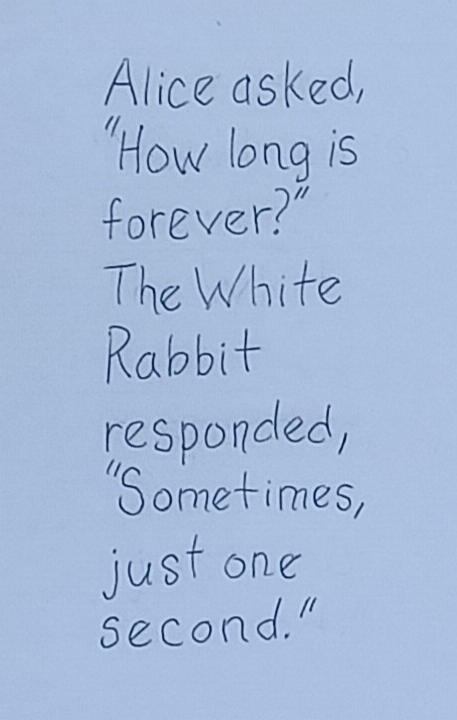 Alice asked,
"How long is
forever?"
The White
Rabbit
responded,
"Sometimes,
just one
second."